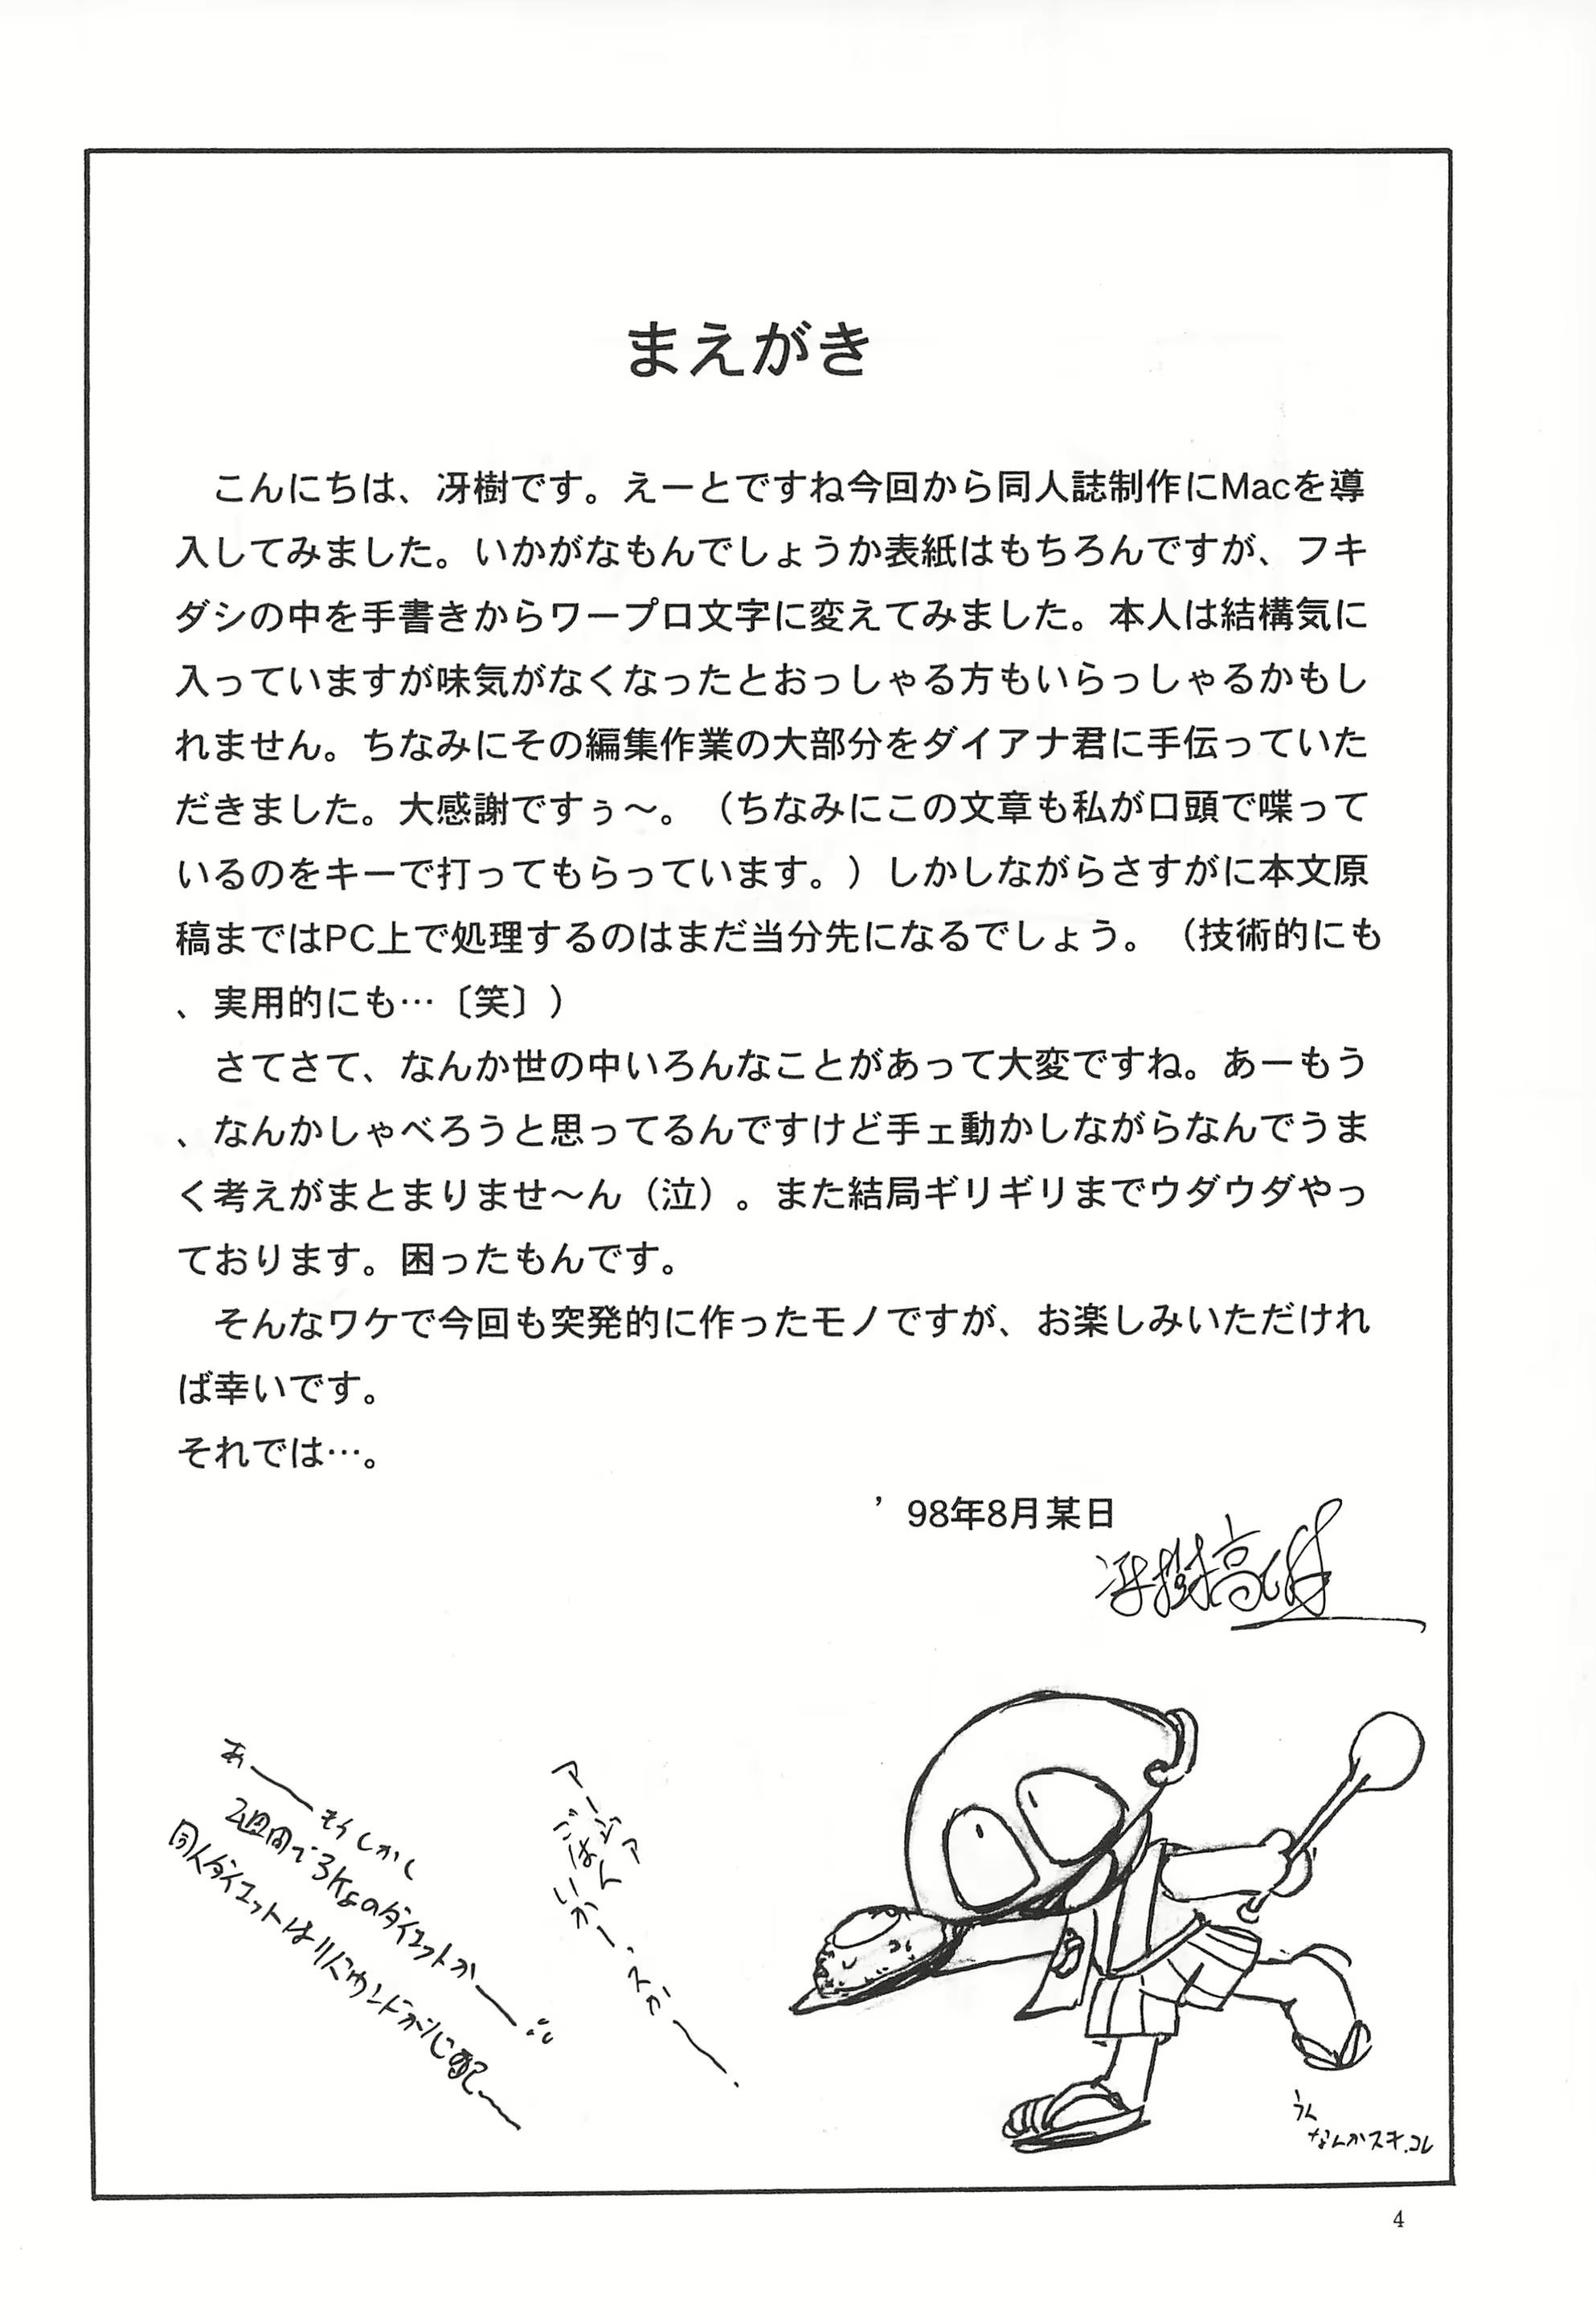 まえがき
　こんにちは、冴樹です。えーとですね今回から同人誌制作にMacを導
入してみました。いかがなもんでしょうか表紙はもちろんですが、フキ
ダシの中を手書きからワープロ文字に変えてみました。本人は結構気に
入っていますが味気がなくなったとおっしゃる方もいらっしゃるかもし
れません。ちなみにその編集作業の大部分をダイアナ君に手伝っていた
だきました。大感謝ですぅ〜。（ちなみにこの文章も私が口頭で喋って
いるのをキーで打ってもらっています。）しかしながらさすがに本文原
稿まではPC上で処理するのはまだ当分先になるでしょう。（技術的にも
、実用的にも…〔笑〕）
　さてさて、なんか世の中いろんなことがあって大変ですね。あーもう
、なんかしゃべろうと思ってるんですけど手ェ動かしながらなんでうま
く考えがまとまりませ〜ん（泣）。また結局ギリギリまでウダウダやっ
ております。困ったもんです。
　そんなワケで今回も突発的に作ったモノですが、お楽しみいただけれ
ば幸いです。
それでは…。
’98年8月某日
冴樹高
あーもうしかし
2週間で3Kgのダイエットかー
同人ダイエットはリバウンドが心配ー
ごはん
いかー・スかー
なんかスキ.コレ
4